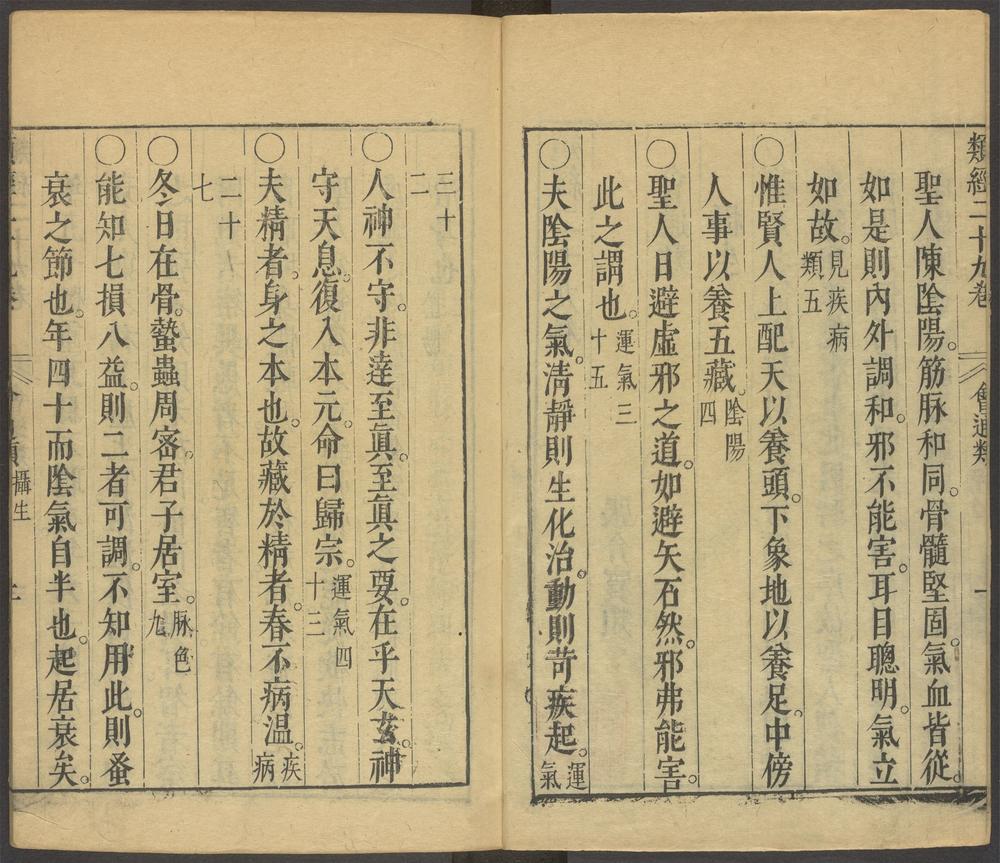 類經二十九卷 會通類 一
聖人陳陰陽。筋脉和同。骨髓堅固。氣血皆從。
如是則內外調和。邪不能害。耳目聰明。氣立
如故。見疾病類五
○惟賢人上配天以養頭。下象地以養足。中傍
人事以養五藏。陰陽四
○聖人日避虛邪之道。如避矢石然。邪弗能害。
此之謂也。運氣三十五
○夫陰陽之氣。淸靜則生化治。動則苛疾起。運氣
三十二
○人神不守。非達至眞。至眞之要。在乎天玄。神
守天息。復入本元。命曰歸宗。運氣四十三
○夫精者。身之本也。故藏於精者。春不病溫。疾病
二十七
○冬日在骨。蟄蟲周宻。君子居室。脉色九
○能知七損八益。則二者可調。不知用此。則蚤
衰之節也。年四十而陰氣自半也。起居衰矣。
攝生